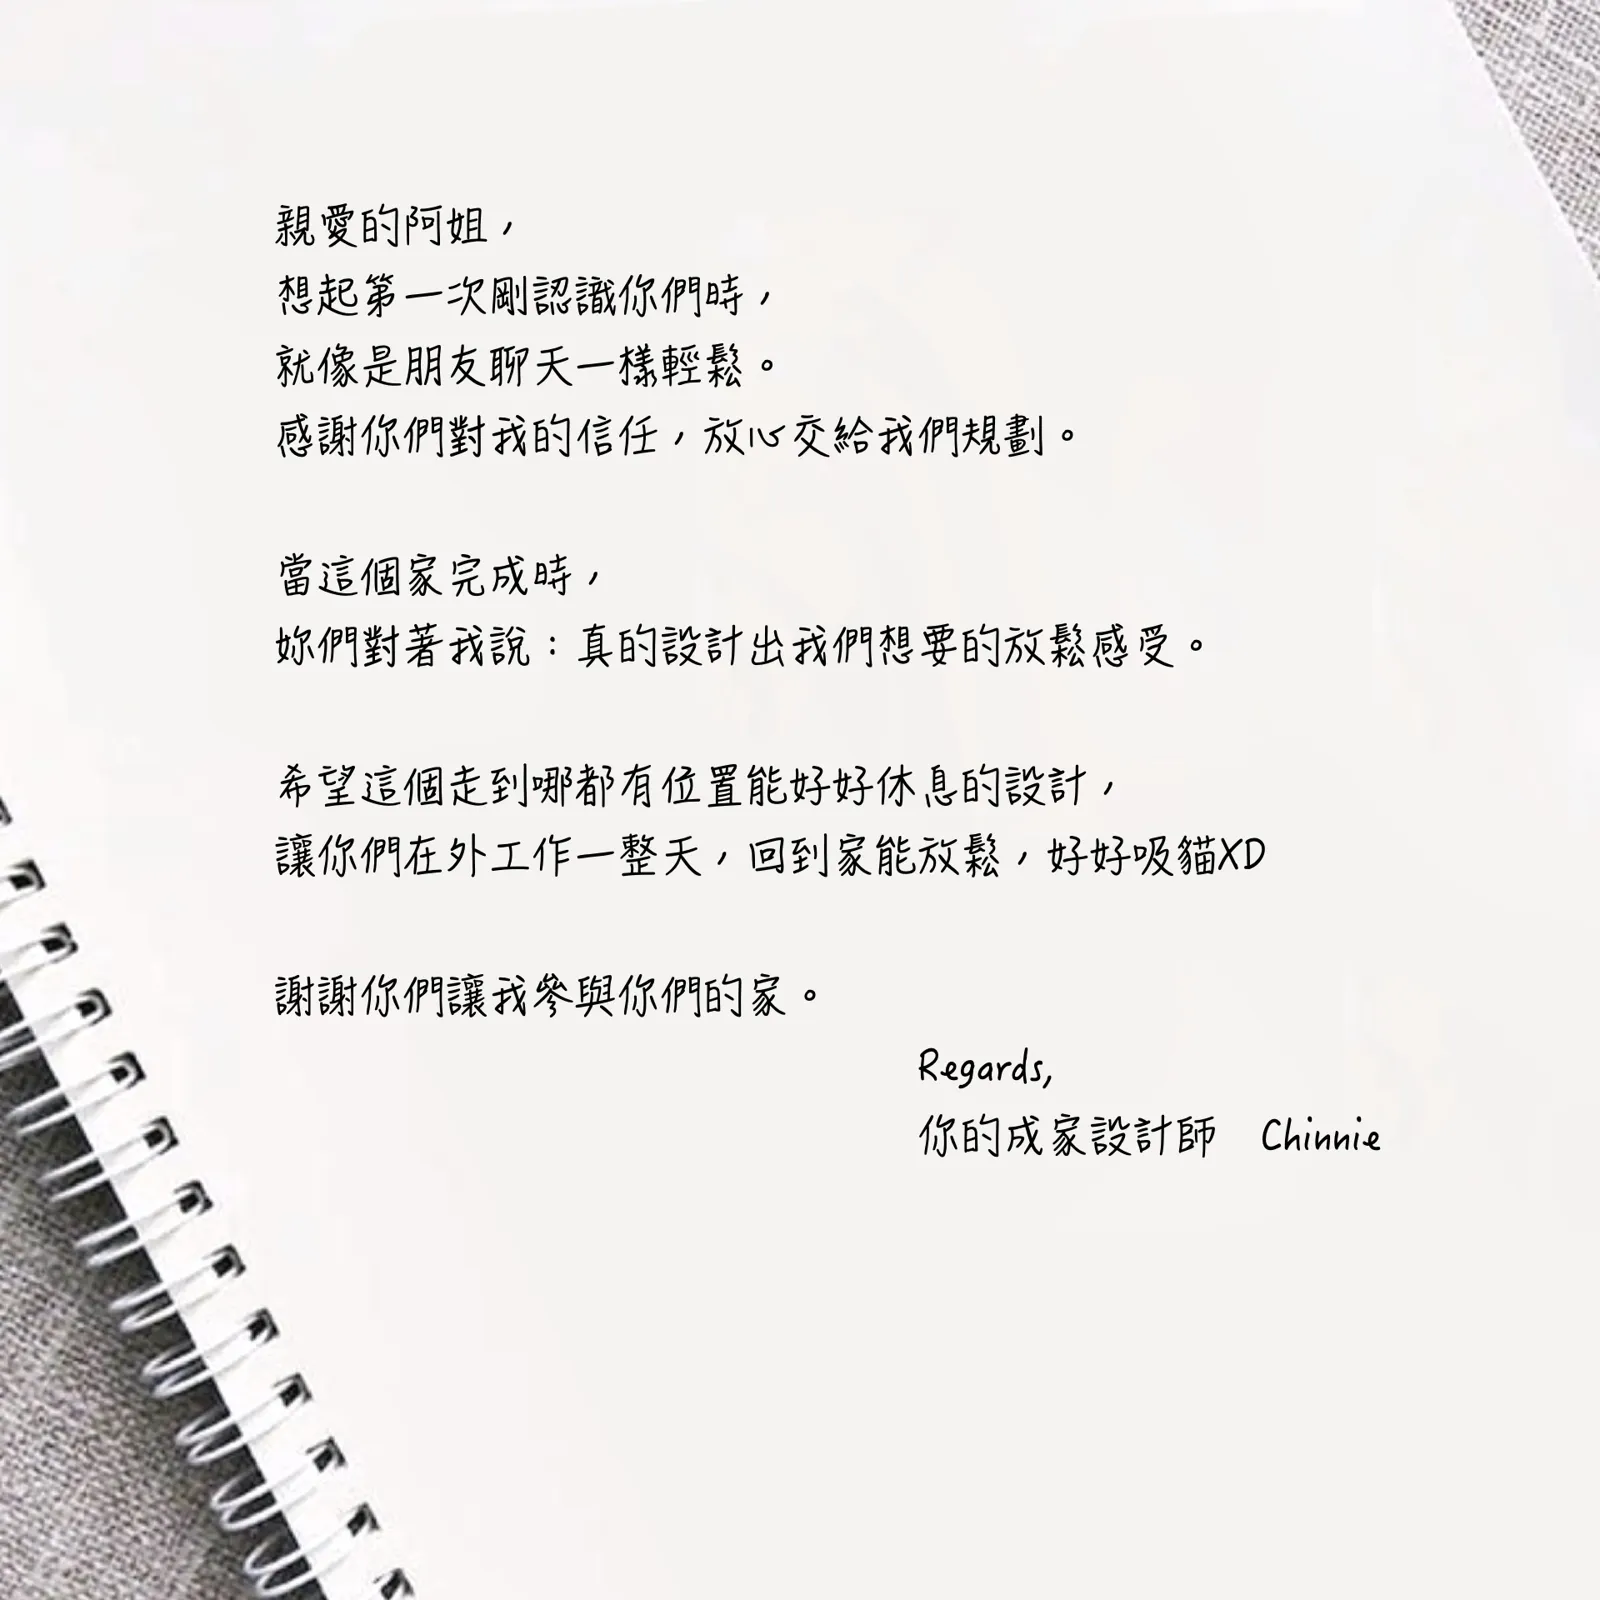 親愛的阿姐，
想起第一次剛認識你們時，
就像是朋友聊天一樣輕鬆。
感謝你們對我的信任，放心交給我們規劃。
當這個家完成時，
妳們對著我說：真的設計出我們想要的放鬆感受。
希望這個走到哪都有位置能好好休息的設計，
讓你們在外工作一整天，回到家能放鬆，好好吸貓XD
謝謝你們讓我參與你們的家。
Regards,
你的成家設計師　Chinnie